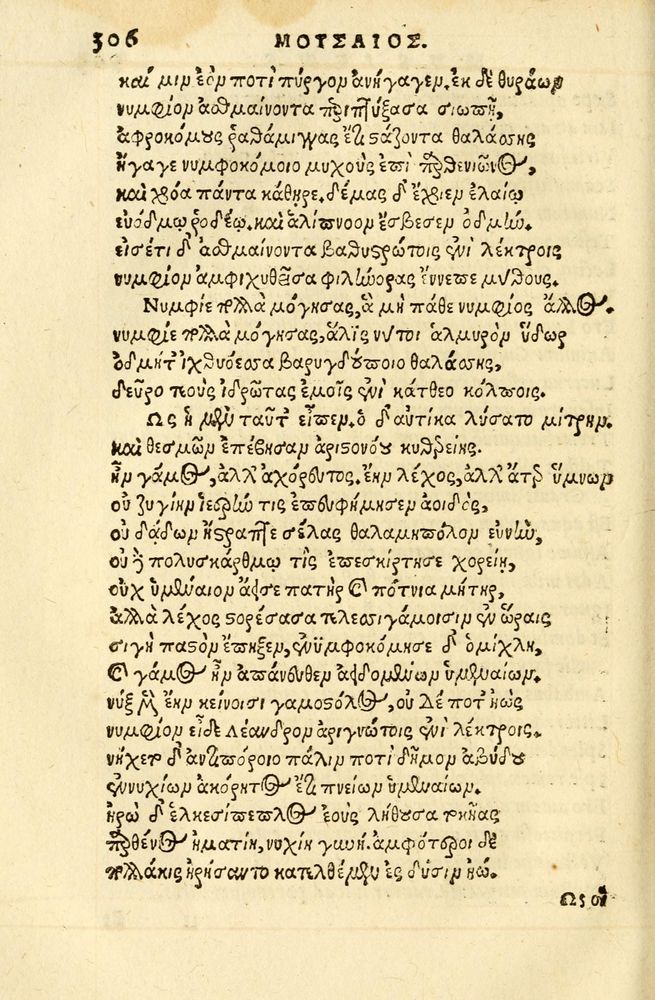 306 ΜΟΥΣΑΙΟΣ.
καί μιν ἑὸν ποτὶ πύργον ἀνήγαγεν. ἐκ δὲ θυράων
νυμφίον ἀσθμαίνοντα περιπτύξασα σιωπῇ,
ἀφροκόμους ῥαθάμιγγας ἔτι στάζοντα θαλάσσης
ἤγαγε νυμφοκόμοιο μυχοὺς ἐπὶ παρθενιῶνος,
καὶ χρόα πάντα κάθηρε. δέμας δ' ἔχριεν ἐλαίῳ
εὐόδμῳ ῥοδέῳ. καὶ ἁλίπνοον ἔσβεσεν ὀδμὼ.
εἰσέτι δ' ἀσθμαίνοντα βαθυστρώτοις ἐνὶ λέκτροις
νυμφίον ἀμφιχυθεῖσα φιλήνορας ἔννεπε μύθους.
Νυμφίε πολλὰ μόγησας, ἃ μὴ πάθε νυμφίος ἄλλος.
νυμφίε πολλὰ μόγησας, ἅλις νύ τοι ἁλμυρὸν ὕδωρ
ὀδμή τ' ἰχθυόεσσα βαρυγδούποιο θαλάσσης,
δεῦρο τοὺς ἱδρῶτας ἐμοῖς ἐνὶ κάτθεο κόλποις.
Ως ἡ μὲν ταῦτ' εἶπεν. ὁ δ' αὐτίκα λύσατο μίτρην.
καὶ θεσμῶν ἐπέβησαν ἀριστονόου κυθερείης.
ἦν γάμος, ἀλλ' ἀχόρευτος. ἔην λέχος, ἀλλ' ἄτερ ὕμνων
οὐ ζυγίην ἱερήν τις ἐπευφήμησεν ἀοιδὸς,
οὐ δᾴδων ἤστραπτε σέλας θαλαμηπόλον εὐνήν,
οὐ δὲ πολυσκάρθμῳ τὶς ἐπεσκίρτησε χορείῃ,
οὐχ ὑμέναιον ἄεισε πατὴρ καὶ πότνια μήτηρ,
ἀλλὰ λέχος στορέσασα τελεσσιγάμοισιν ἐν ὥραις
σιγὴ παστὸν ἔπηξεν, ἐνυμφοκόμησε δ' ὁμίχλη,
καὶ γάμος ἦν ἀπάνευθεν ἀειδομένων ὑμεναίων.
νὺξ μὲν ἔην κείνοισι γαμοστόλος, οὐ δέ ποτ' ἠὼς
νυμφίον εἶδε Λέανδρον ἀριγνώτοις ἐνὶ λέκτροις.
νήχετο δ' ἀντιπόροιο πάλιν ποτὶ δῆμον ἀβύδου
ἐννυχίων ἀκόρητος ἔτι πνείων ὑμεναίων.
ἡρὼ δ' ἑλκεσίπεπλος ἑοὺς λήθουσα τοκῆας
παρθένος ἠματίη, νυχίη γυνή. ἀμφότεροι δὲ
πολλάκις ἠρήσαντο κατελθέμεν ἐς δύσιν ἠώ.
Ως οἱ